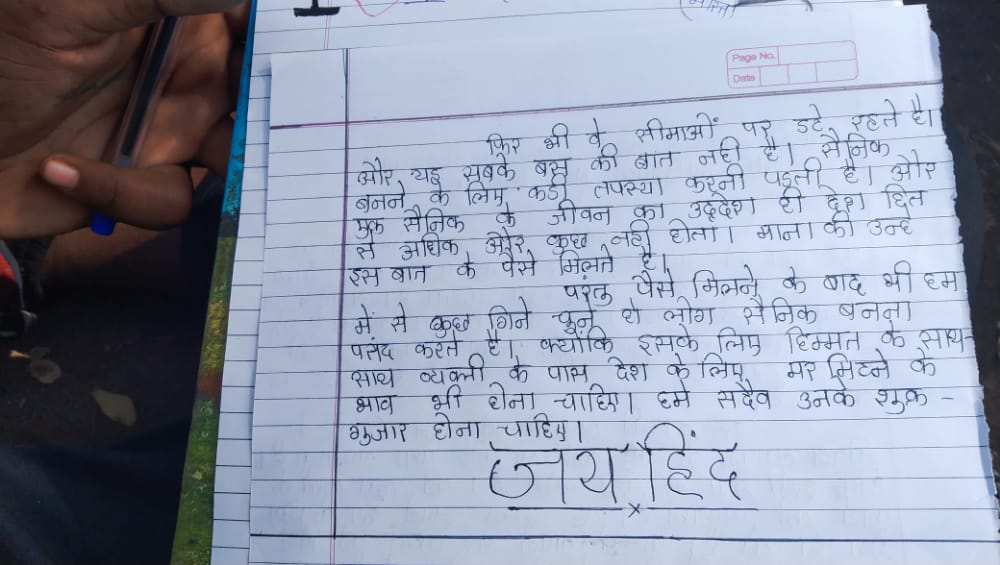 Page No.
Date
फिर भी वे सीमाओं पर डटे रहते है।
और यह सबके बस की बात नही है। सैनिक
बनने के लिए कडी तपस्या करनी पड़ती है। और
एक सैनिक के जीवन का उद्देश ही देश हित
से अधिक और कुछ नही होता। माना की उन्हे
इस बात के पैसे मिलते है।
परंतु पैसे मिलने के बाद भी हम
में से कुछ गिने चुने ही लोग सैनिक बनना
पसंद करते है। क्योंकि इसके लिए हिम्मत के साथ-
साथ व्यक्ती के पास देश के लिए मर मिटने के
भाव भी होना चाहिए। हमे सदैव उनके शुक्र-
गुजार होना चाहिए।
जय हिंद
x